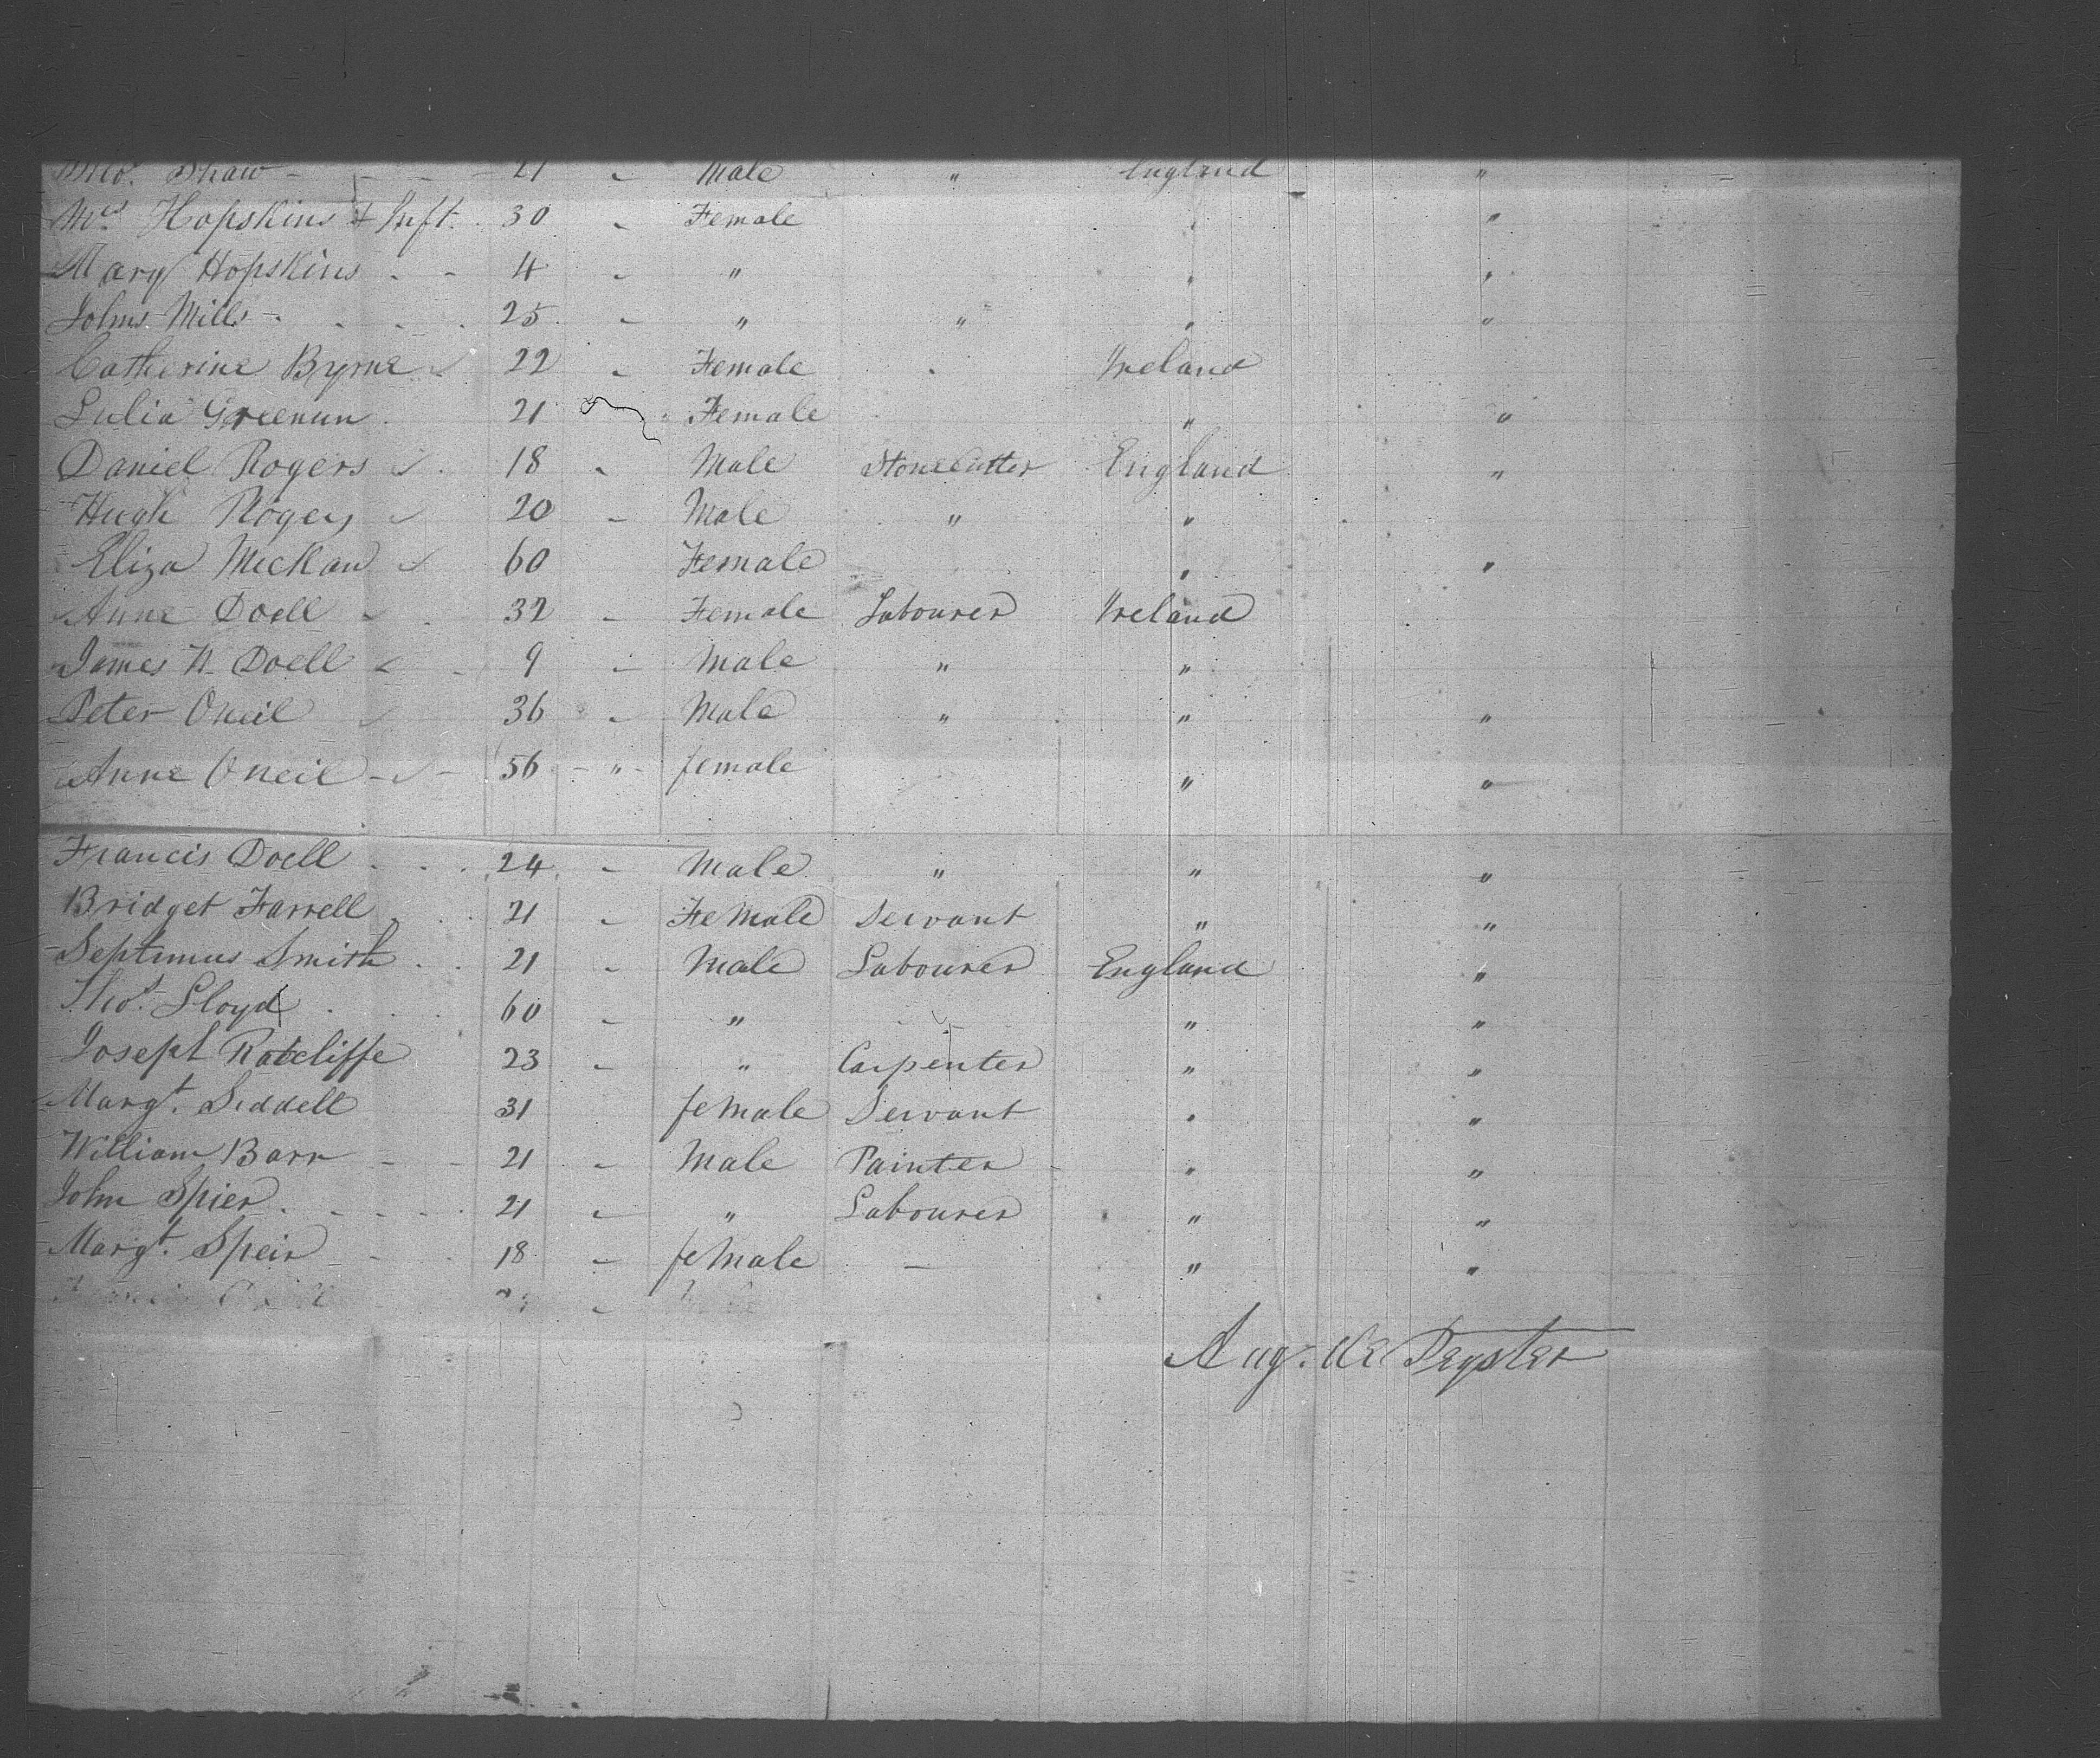 Thos. Shaw - - - - 21 - Male " England "
Mrs. Hopskins + Inft. 30 - Female " "
Mary Hopskins - - 4 - " " "
Johns Mills - - - - 25 - " " " "
Catherine Byrne 22 - Female " Ireland
Julia Greenun 21 " Female " "
Daniel Rogers 18 - Male Stone Cutter England "
Hugh Rogers 20 - Male " "
Eliza McKan 60 Female " "
Anne Doell 32 - Female Labourer Ireland
James H. Doell 9 - Male " "
Peter Oneil 36 - Male " " "
Anne Oneil - - 56 - " - female " "
Francis Doell . . . 24 - Male " " "
Bridget Farrell . . 21 - Female Servant " "
Septimus Smith . . 21 - Male Labourer England "
Thos. Lloyd . . . 60 - " " "
Joseph Ratcliffe 23 - " Carpenter " "
Margt. Siddell 31 female Servant " "
William Barr - - 21 - Male Painter - " "
John Spier . - - - 21 - " Labourer " "
Margt. Speir - - 18 - female - " "
Aug. De Peyster